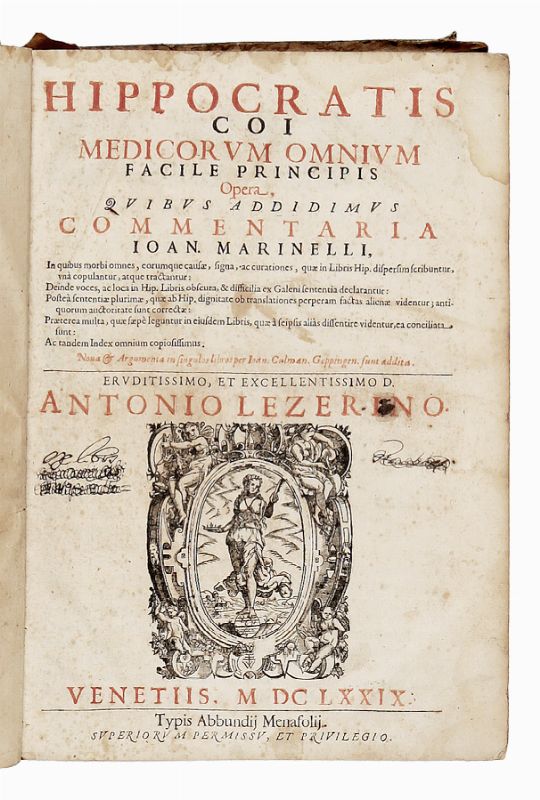 HIPPOCRATIS
COI
MEDICORVM OMNIVM
FACILE PRINCIPIS
Opera,
QVIBVS ADDIDIMVS
COMMENTARIA
IOAN. MARINELLI,
In quibus morbi omnes, eorumque causæ, signa, ac curationes, quæ in Libris Hip. dispersim scribuntur,
vnà copulantur, atque tractantur:
Deinde voces, ac loca in Hip. Libris obscura, & difficilia ex Galeni sententia declarantur:
Posteà sententiæ plurimæ, quæ ab Hip. dignitate ob translationes perperam factas alienæ videntur; anti-
quorum auctoritate sunt correctæ:
Præterea multa, quæ sæpè leguntur in eiusdem Libris, quæ à seipsis aliàs dissentire videntur, ea conciliata
sunt:
Ac tandem Index omnium copiosissimus.
Noua & Argumenta in singulos libros per Ioan. Culman. Geppingen. sunt addita.
ERVDITISSIMO, ET EXCELLENTISSIMO D.
ANTONIO LEZER INO.
ex libris
VENETIIS. M DC LXXIX.
Typis Abbundij Menafolij.
SVPERIORVM PERMISSV, ET PRIVILEGIO.